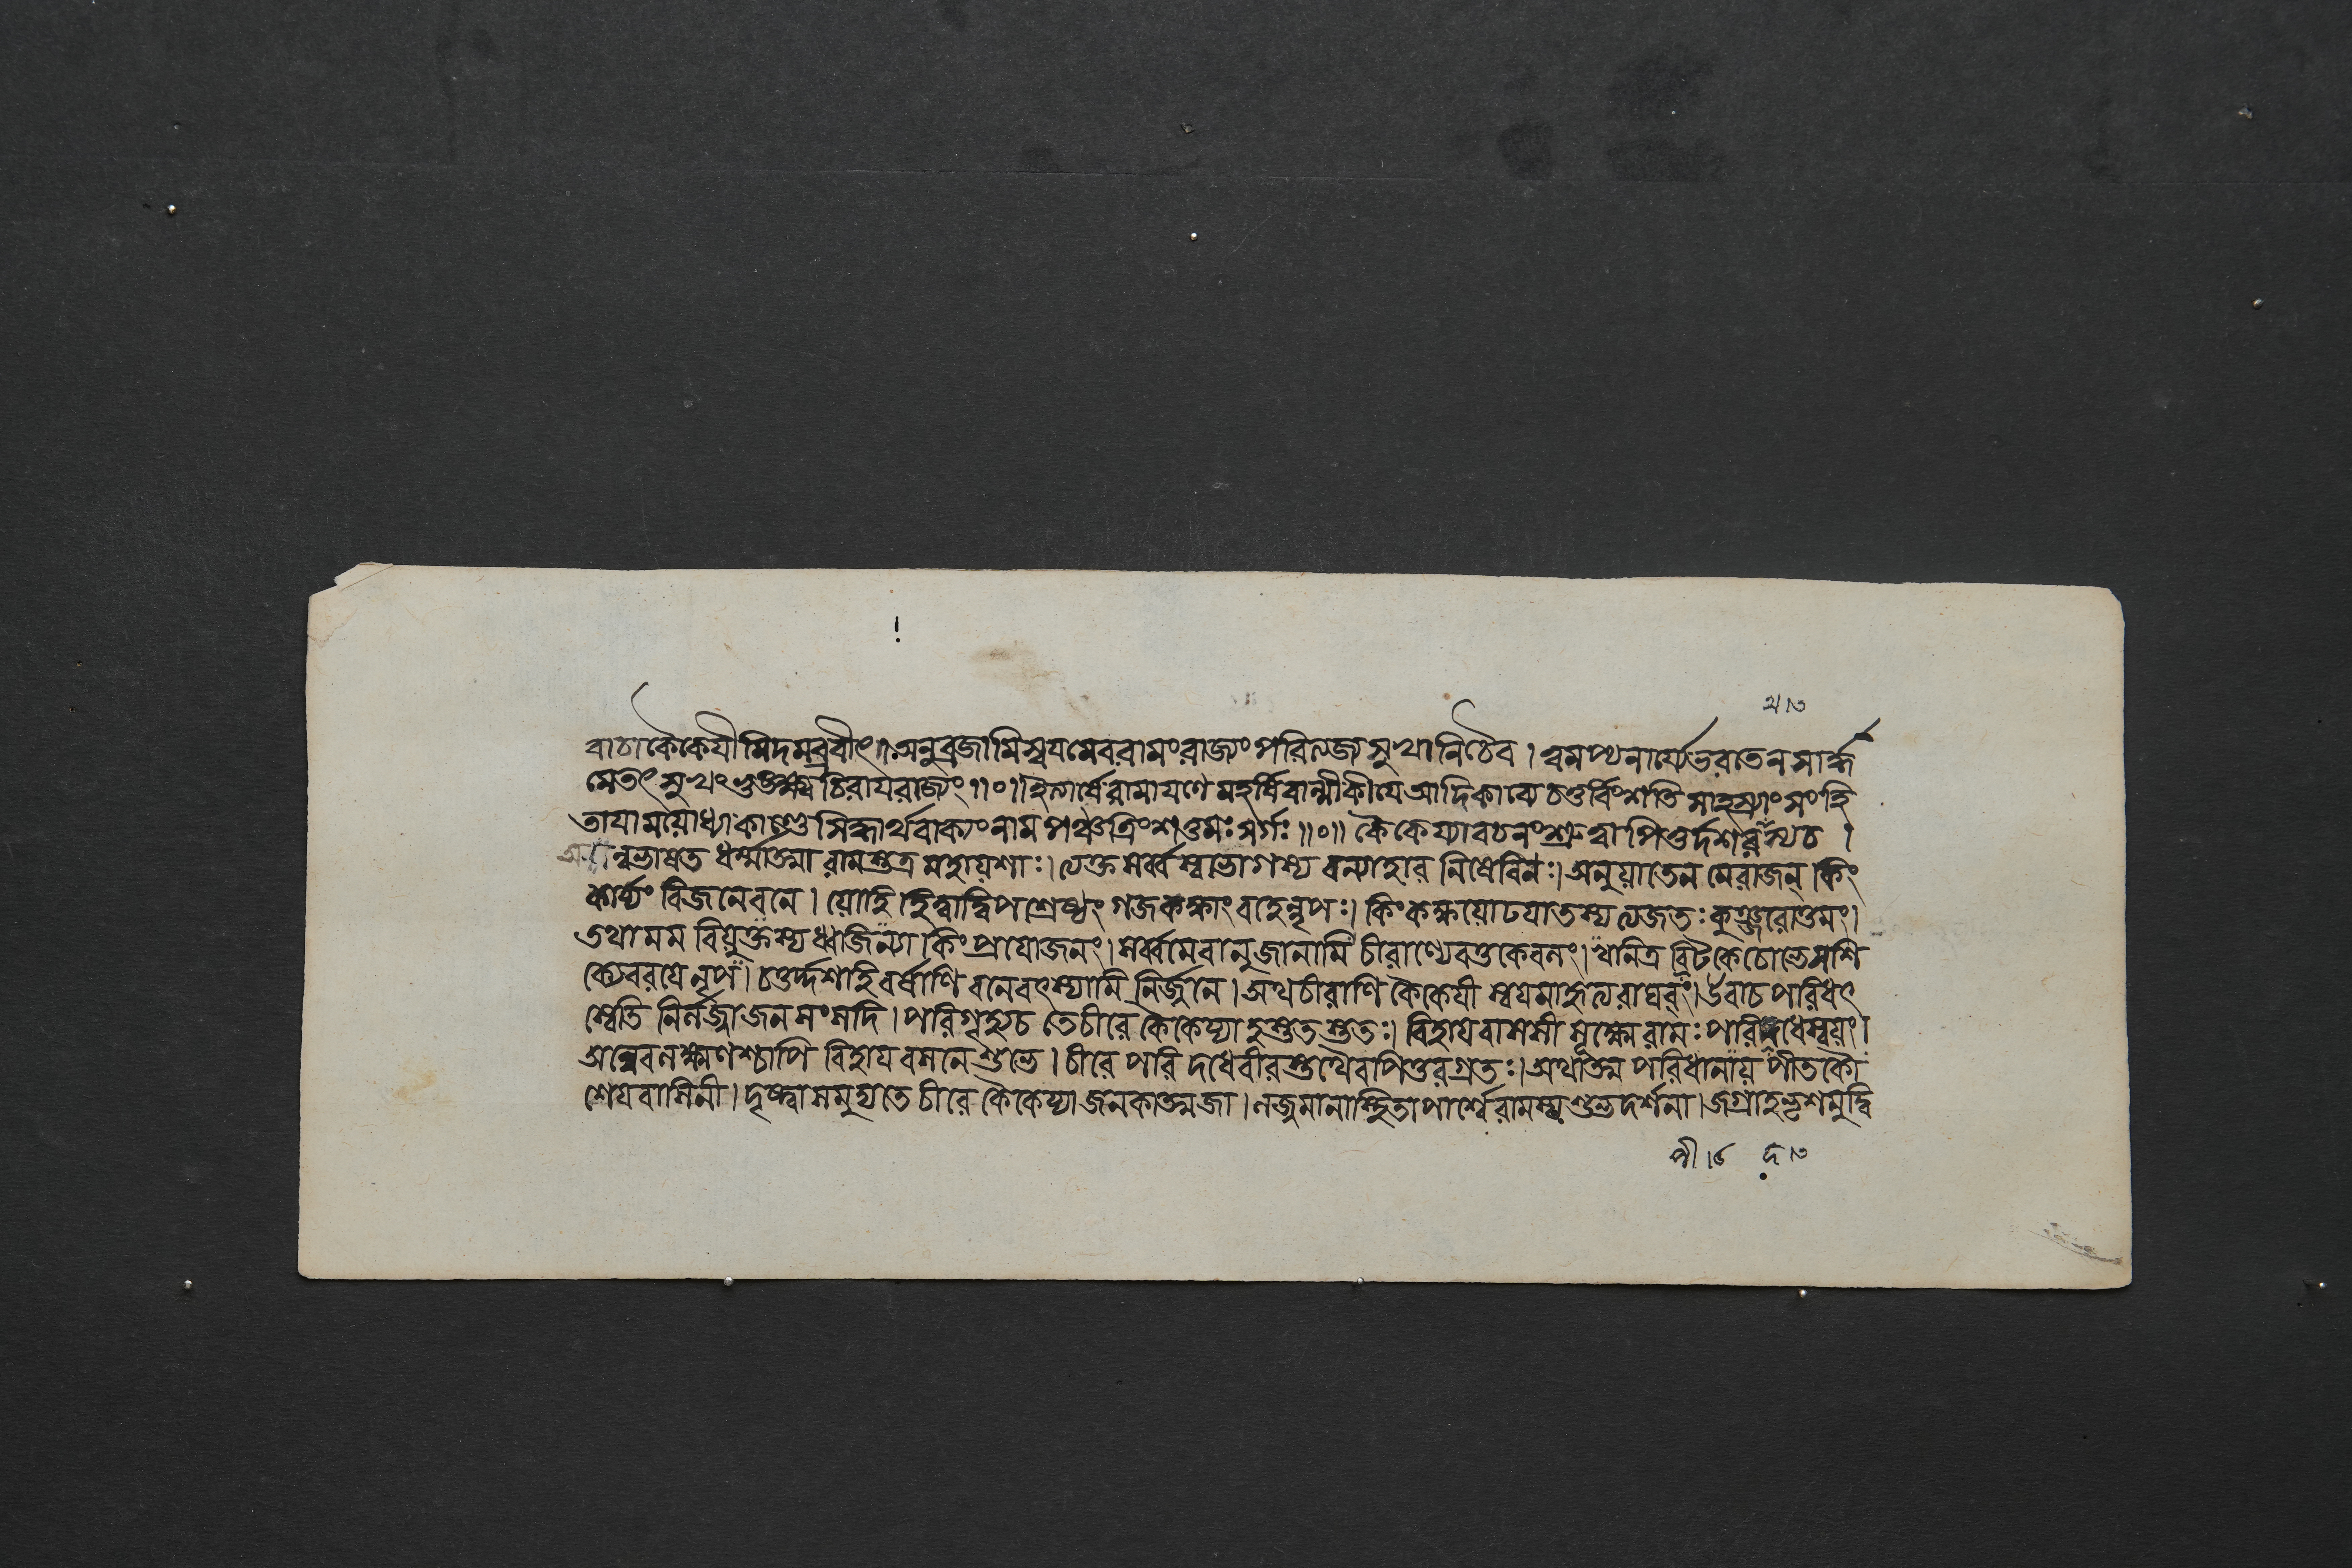 থ।৩
বাচা কৈকেযীমিদমব্রবীৎ॥অনুব্রজামি স্বযমেব রামং রাজ্যং পরিত্যজ্য সুখানি চৈব। ত্বমপ্যনার্যে ভরতেন সার্দ্ধ
মেতৎ সুখং ভুঙ্ক্ষ্ব চিরায রাজ্যং॥০॥ইত্যার্ষে রামাযণে মহর্ষিবাল্মীকীযে আদিকাব্যে চতুর্বিংশতি সাহস্র্যাং সংহি
তাযাময়োধ্যাকাণ্ডে সিদ্ধার্থবাক্যং নাম পঞ্চত্রিংশত্তমঃ সর্গঃ॥০॥ কৈকেয্যা বচনং শ্রুত্বা পিতুর্দশরথস্য চ।
অন্বভাষত ধর্ম্মাত্মা রামস্তত্র মহায়শাঃ। ত্যক্ত সর্ব্বস্বভোগস্য বন্যাহার নিষেবিনঃ। অনুয়াতেন মে রাজন্ কিং
কার্য্যং বিজনে বনে। য়োহি হিত্বা দ্বিপশ্রেষ্ঠং গজকক্ষাং বহেন্নৃপঃ। কিং কক্ষয়োঢযা তস্য ত্যজতঃ কুঞ্জরোত্তমং।
তথা মম বিয়ুক্তস্য ধ্বজিন্যা কিং প্রযোজনং। সর্ব্বমেবানুজানামি চীরাণ্যেব তু কেবনং। খনিত্র পিটকে চোভে সশি
ক্যে বরযে নৃপ। চতুর্দ্দশাহি বর্ষাণি বনে বৎস্যামি নির্জনে। অথ চীরাণি কৈকেযী স্বযমাহৃত্য রাঘবং। উবাচ পরিধৎ
স্বেতি নির্লজ্জা জন সংসদি। পরিগৃহ্য চ তে চীরে কৈকেয্যা হস্ততস্ততঃ। বিহায বাসসী সূক্ষ্মে রামঃ পরিদধে স্বয়ং।
অন্বেব লক্ষ্মণশ্চাপি বিহায বসনে শুভে। চীরে পরি দধে বীরস্তথৈব পিতুরগ্রতঃ। অথাত্ম পরিধানায় পীতকৌ
শেযবাসিনী। দৃষ্ট্বা সমুদ্যতে চীরে কৈকেয্যা জনকাত্মজা। লজ্জমানা স্থিতা পার্শ্বে রামস্য শুভদর্শনা। জগ্রাহ ভৃশমুদ্বি
সী।৫ দ।৩